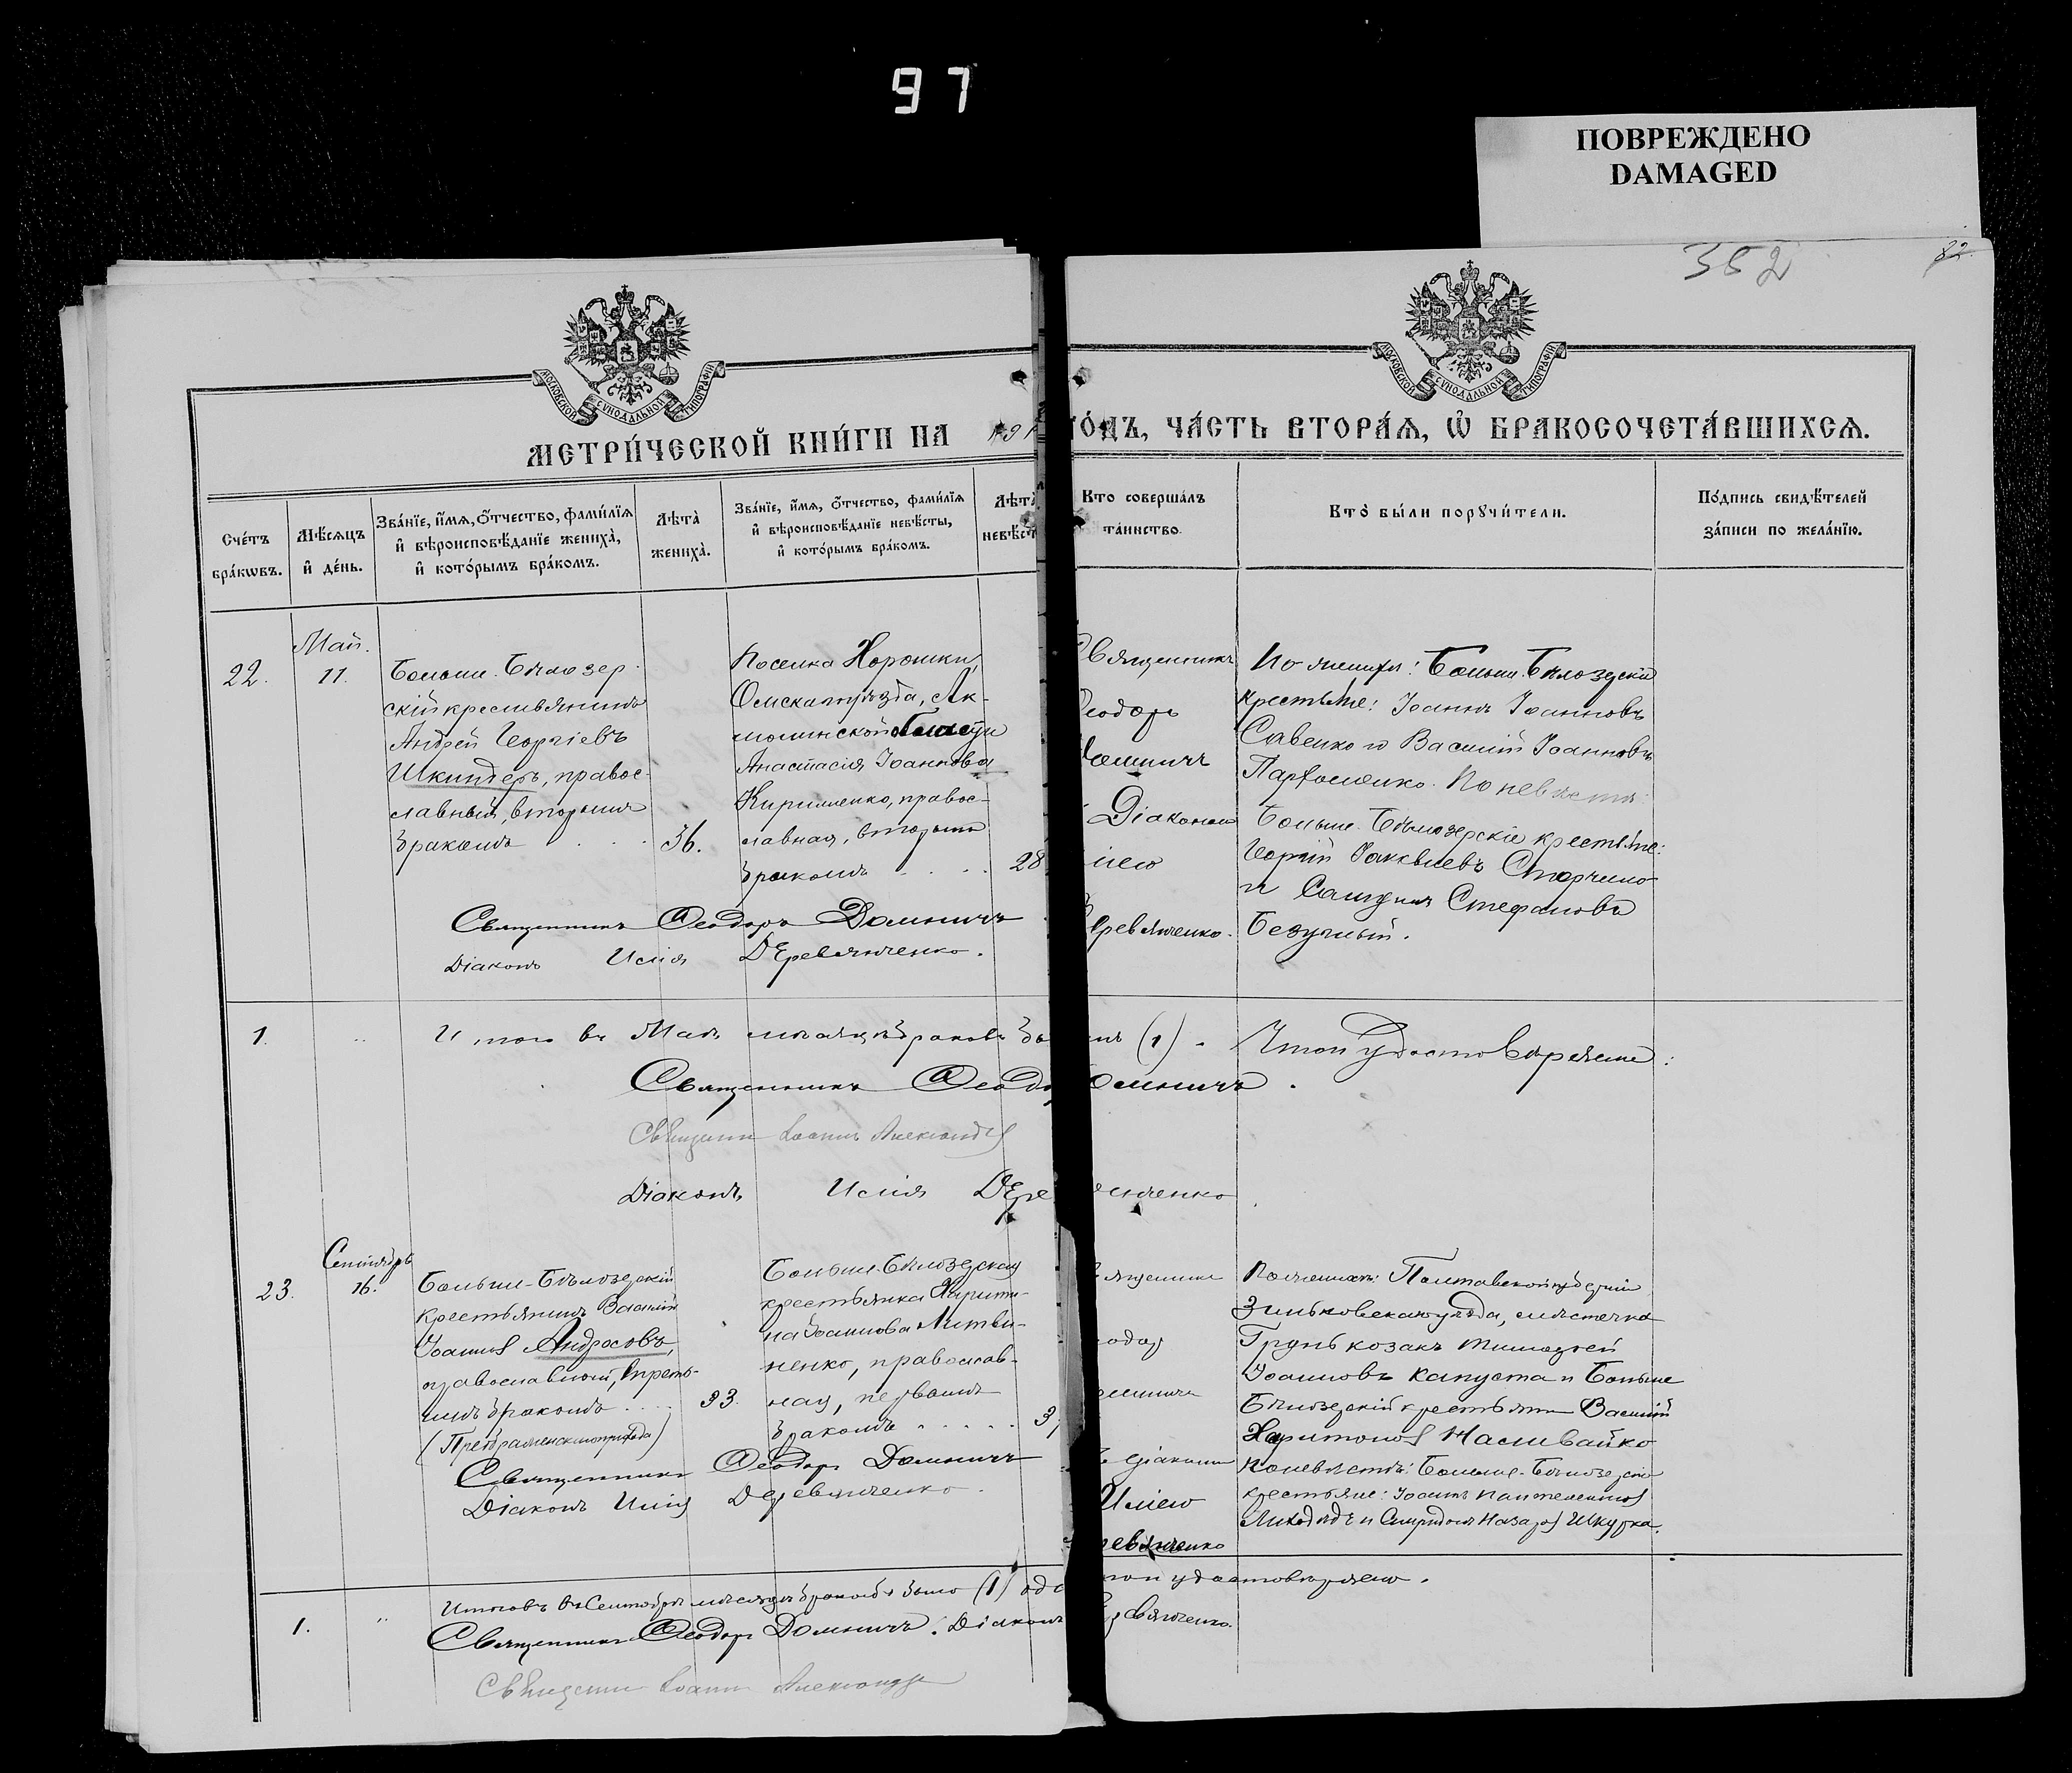 97
ПОВРЕЖДЕНО
DAMAGED
352
82
МОСКОВСКОЙ СѴНОДАЛЬНОЙ ТИПОГРАФІИ
МОСКОВСКОЙ СѴНОДАЛЬНОЙ ТИПОГРАФІИ
МЕТРИ́ЧЕСКОЙ КНИ́ГИ НА 191
ГО́ДЪ, ЧА́СТЬ ВТОРА́Ѧ, Ѡ҆ БРАКОСОЧЕТА́ВШИХСѦ.
Сче́тъ бра́кѡвъ.
Мѣ́сѧцъ и҆ де́нь.
Зва́нїе, и҆́мѧ, ѻ҆́тчество, фами́лїѧ и҆ вѣроисповѣ́данїе жениха̀, и҆ кото́рымъ бра́комъ.
Лѣта̀ жениха̀.
Зва́нїе, и҆́мѧ, ѻ҆́тчество, фами́лїѧ и҆ вѣроисповѣ́данїе невѣ́сты, и҆ кото́рымъ бра́комъ.
Лѣта̀ невѣ́ст
Кто̀ соверша́лъ та́инство.
Кто̀ бы́ли порꙋчи́тели.
По́дпись свидѣ́телей за́писи по жела́нїю.
22.
Май.
11.
Больше-Бѣлозер-
скій крестьянинъ
Андрей Георгіевъ
Шкиндеръ, правос-
лавный, вторымъ
бракомъ . . .
36.
Поселка Хорошки,
Омскаго уѣзда, Ак-
молинской области
Анастасія Іоаннова
Кириленко, правос-
лавная, вторымъ
бракомъ . . . .
28
Священникъ
Ѳеодоръ
Домничъ
Діакономъ
Иліею
Деревянченко.
По женихѣ: Больше-Бѣлозерскіе
крестьяне: Іоаннъ Іоанновъ
Савенко и Василій Іоанновъ
Пархоменко. По невѣстѣ:
Больше-Бѣлозерскіе крестьяне:
Георгій Сторчило
и Стефановъ
Безуглый.
Священникъ Ѳеодоръ Домничъ
Діаконъ Илія Деревянченко.
1.
Итого въ Маѣ мѣсяцѣ браковъ (1). Въ томъ удостовѣряемъ:
Священникъ Ѳеодоръ Домничъ.
Священникъ Іоаннъ
Діаконъ Илія Деревянченко.
23.
Сентябрь
16.
Больше-Бѣлозерскій
крестьянинъ Василій
Іоанновъ Андросовъ,
православный, треть-
имъ бракомъ . . . .
(Преображенскаго прихода)
33.
Больше-Бѣлозерская
крестьянка Харити-
на Іоаннова Литви-
ненко, православ-
ная, первымъ
бракомъ . . . . .
3
Домничъ
съ діакономъ
Иліею
Деревянченко
По женихѣ: Полтавской губерніи
Зиньковскаго уѣзда, мѣстечка
Грунь козакъ Тимофей
Іоанновъ Капуста и Больше
Бѣлозерскій крестьянинъ Василій
Харитоновъ Наливайко
По невѣстѣ: Больше-Бѣлозерскіе
крестьяне: Іоаннъ Пантелеимоновъ
Лиходѣдъ и Спиридонъ Назаровъ Шкурка.
Священникъ Ѳеодоръ Домничъ
Діаконъ Илія Деревянченко.
1.
Итого въ Сентябрѣ мѣсяцѣ браковъ было (1) удостовѣряемъ.
Священникъ Ѳеодоръ Домничъ. Діаконъ Деревянченко.
Священникъ Іоаннъ